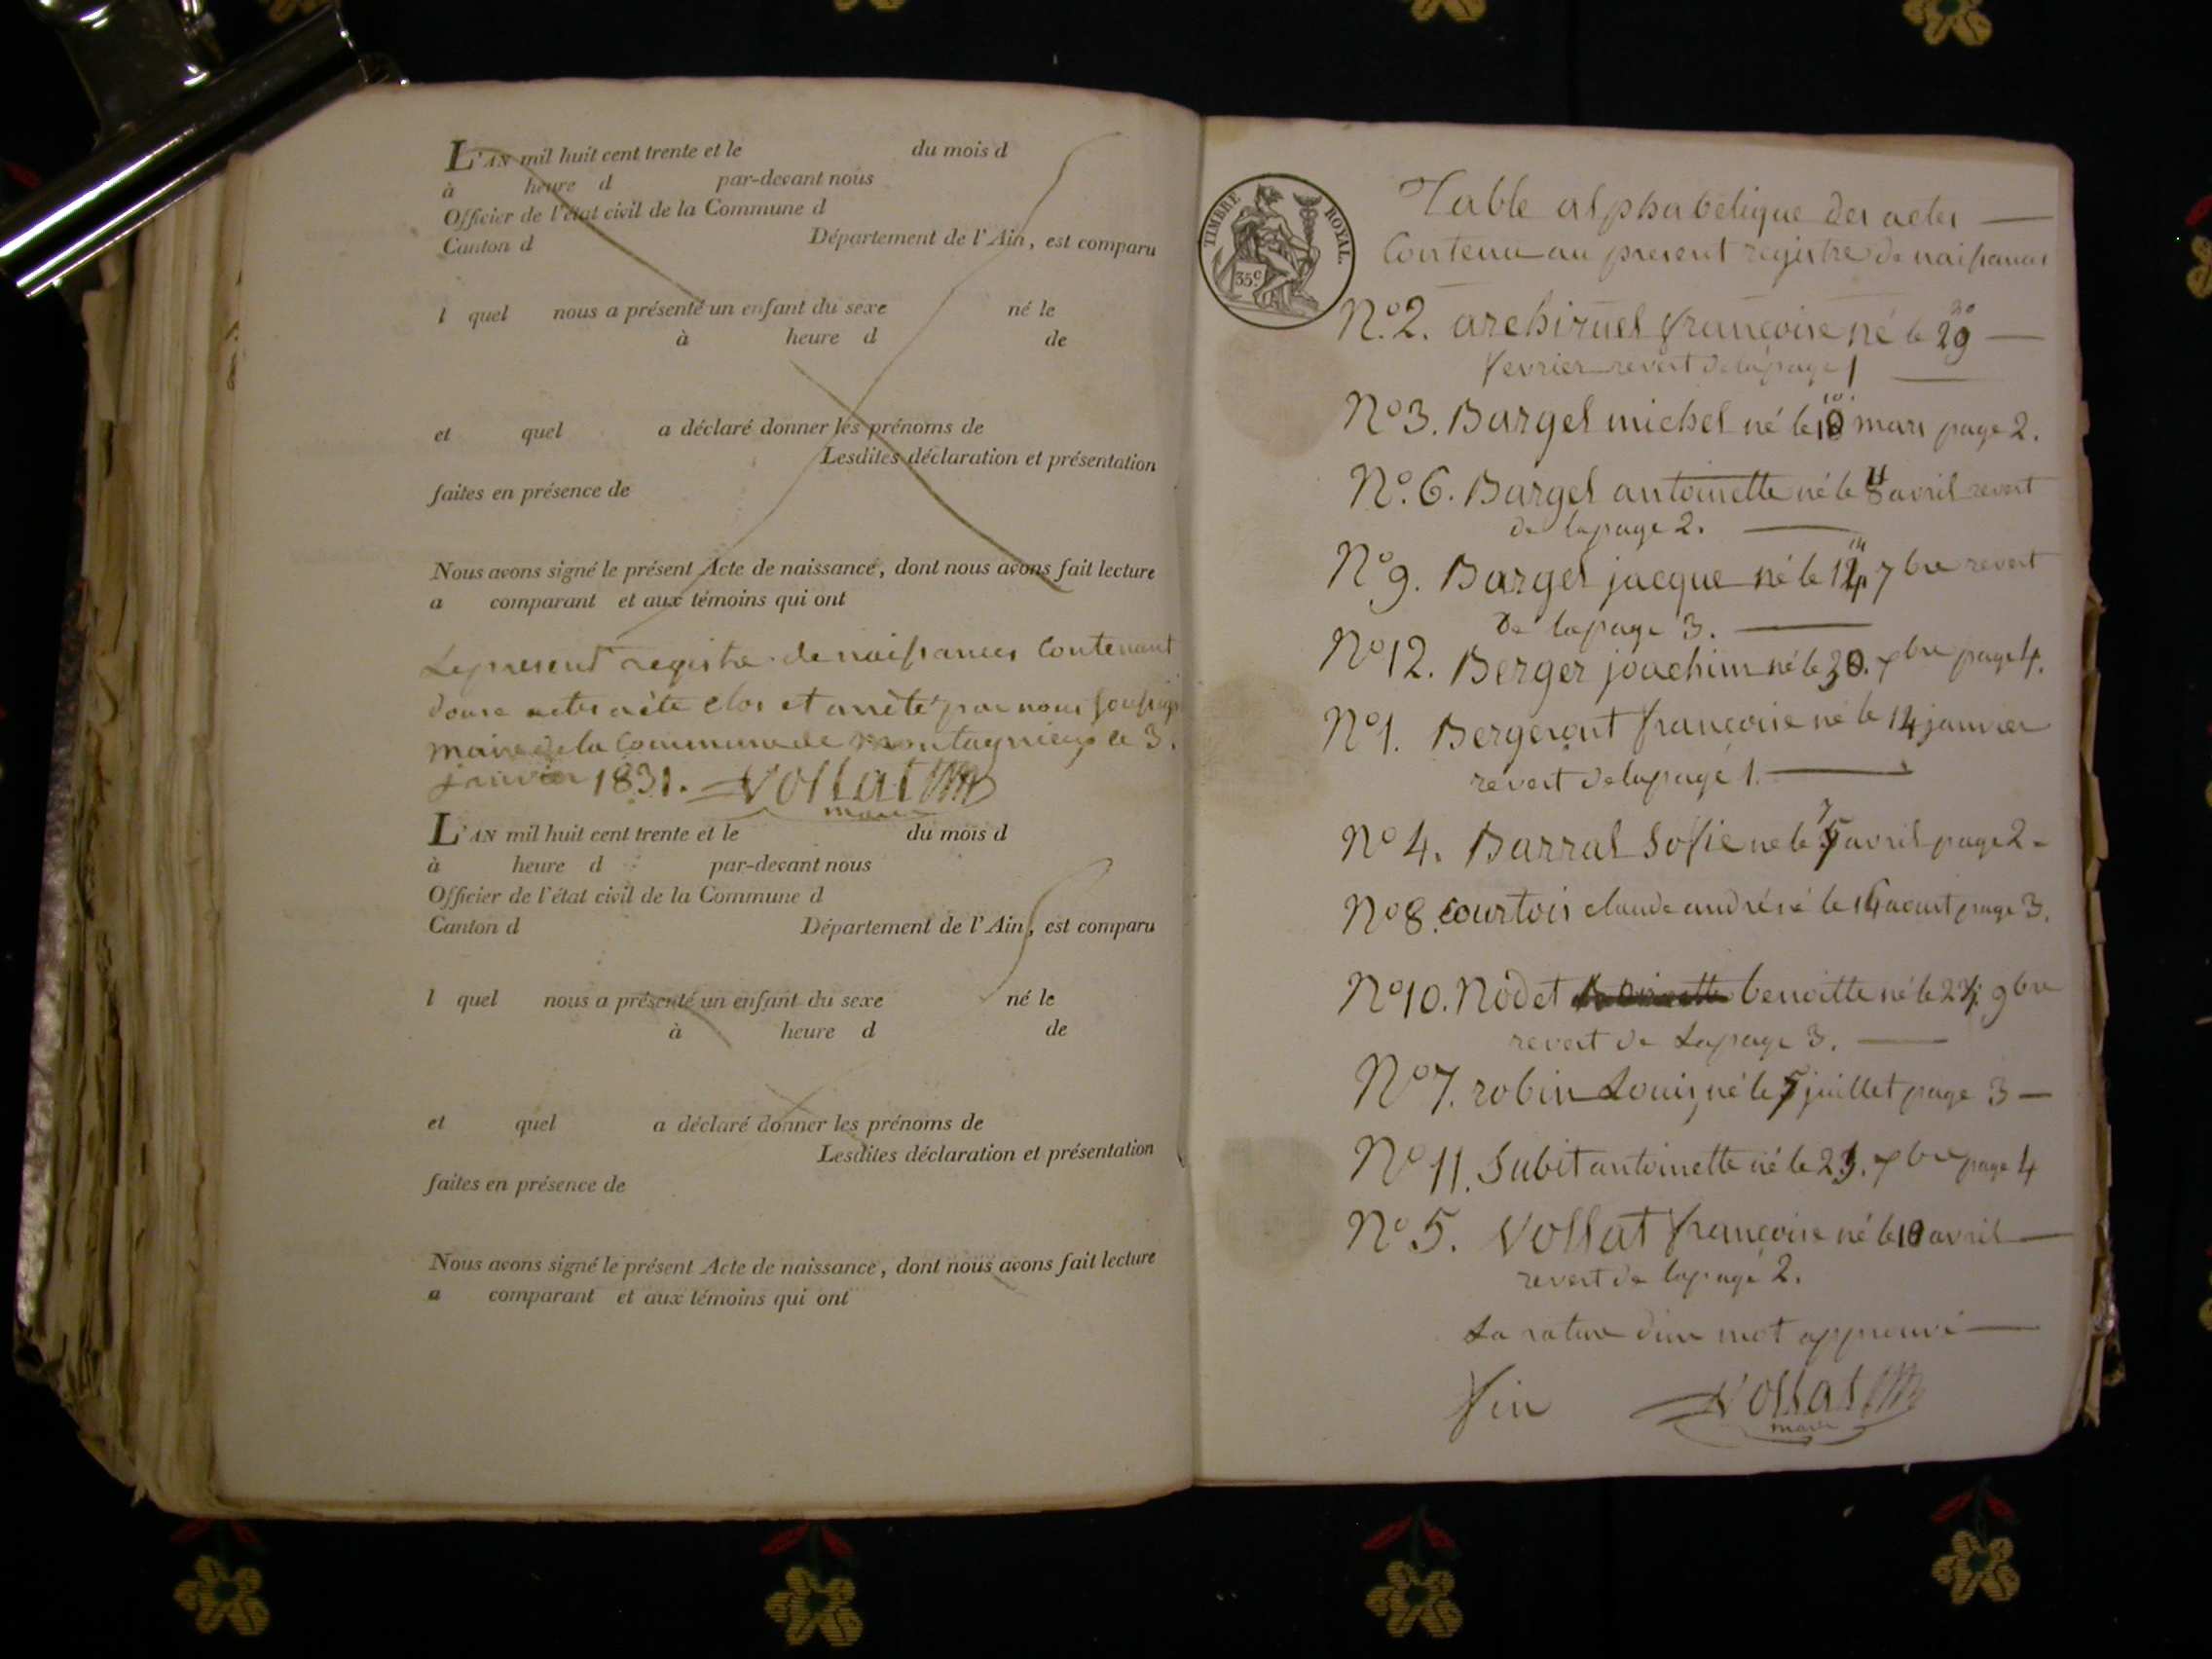 L'AN mil huit cent trente et le du mois d
à heure d par-devant nous
Officier de l'état civil de la Commune d
Canton d Département de l'Ain, est comparu
l quel nous a présenté un enfant du sexe né le
à heure d de
et quel a déclaré donner les prénoms de
Lesdites déclaration et présentation
faites en présence de
Nous avons signé le présent Acte de naissance, dont nous avons fait lecture
a comparant et aux témoins qui ont
Le present registre de naissances Contenant
douse actes a été clos et arrêté par nous
maire de la Commune de montagnieux le 3.
janvier 1831. Vollat
maire
L'AN mil huit cent trente et le du mois d
à heure d par-devant nous
Officier de l'état civil de la Commune d
Canton d Département de l'Ain, est comparu
l quel nous a présenté un enfant du sexe né le
à heure d de
et quel a déclaré donner les prénoms de
Lesdites déclaration et présentation
faites en présence de
Nous avons signé le présent Acte de naissance, dont nous avons fait lecture
a comparant et aux témoins qui ont
TIMBRE ROYAL.
35c
Table alphabetique des actes
Contenu au present registre de naissances
No 2. archiruel francoise né le 29
fevrier revert de la page 1
No 3. Bargel michel né le 10 mars page 2.
No. 6. Bargel antoinette né le avril revert
de la page 2.
No 9. Bargel jacque né le 14 7bre revert
de la page 3.
No 12. Berger joachim né le 30. xbre page 4.
No 1. Bergeront francoise né le 14 janvier
revert de la page 1.
No 4. Barral Sofie né le avril page 2.
No 8. Courtois claude andré né le 16 aout page 3.
No 10. Nodet benoitte né le 24 9bre
revert de Lapage 3.
No 7. robin Louis, né le 5 juillet page 3
No 11. Subit antoinette né le 23. xbre page 4
No 5. Vollat francoise né le 10 avril
revert de lapage 2.
La rature d'un mot approuvé
fin Vollat
maire